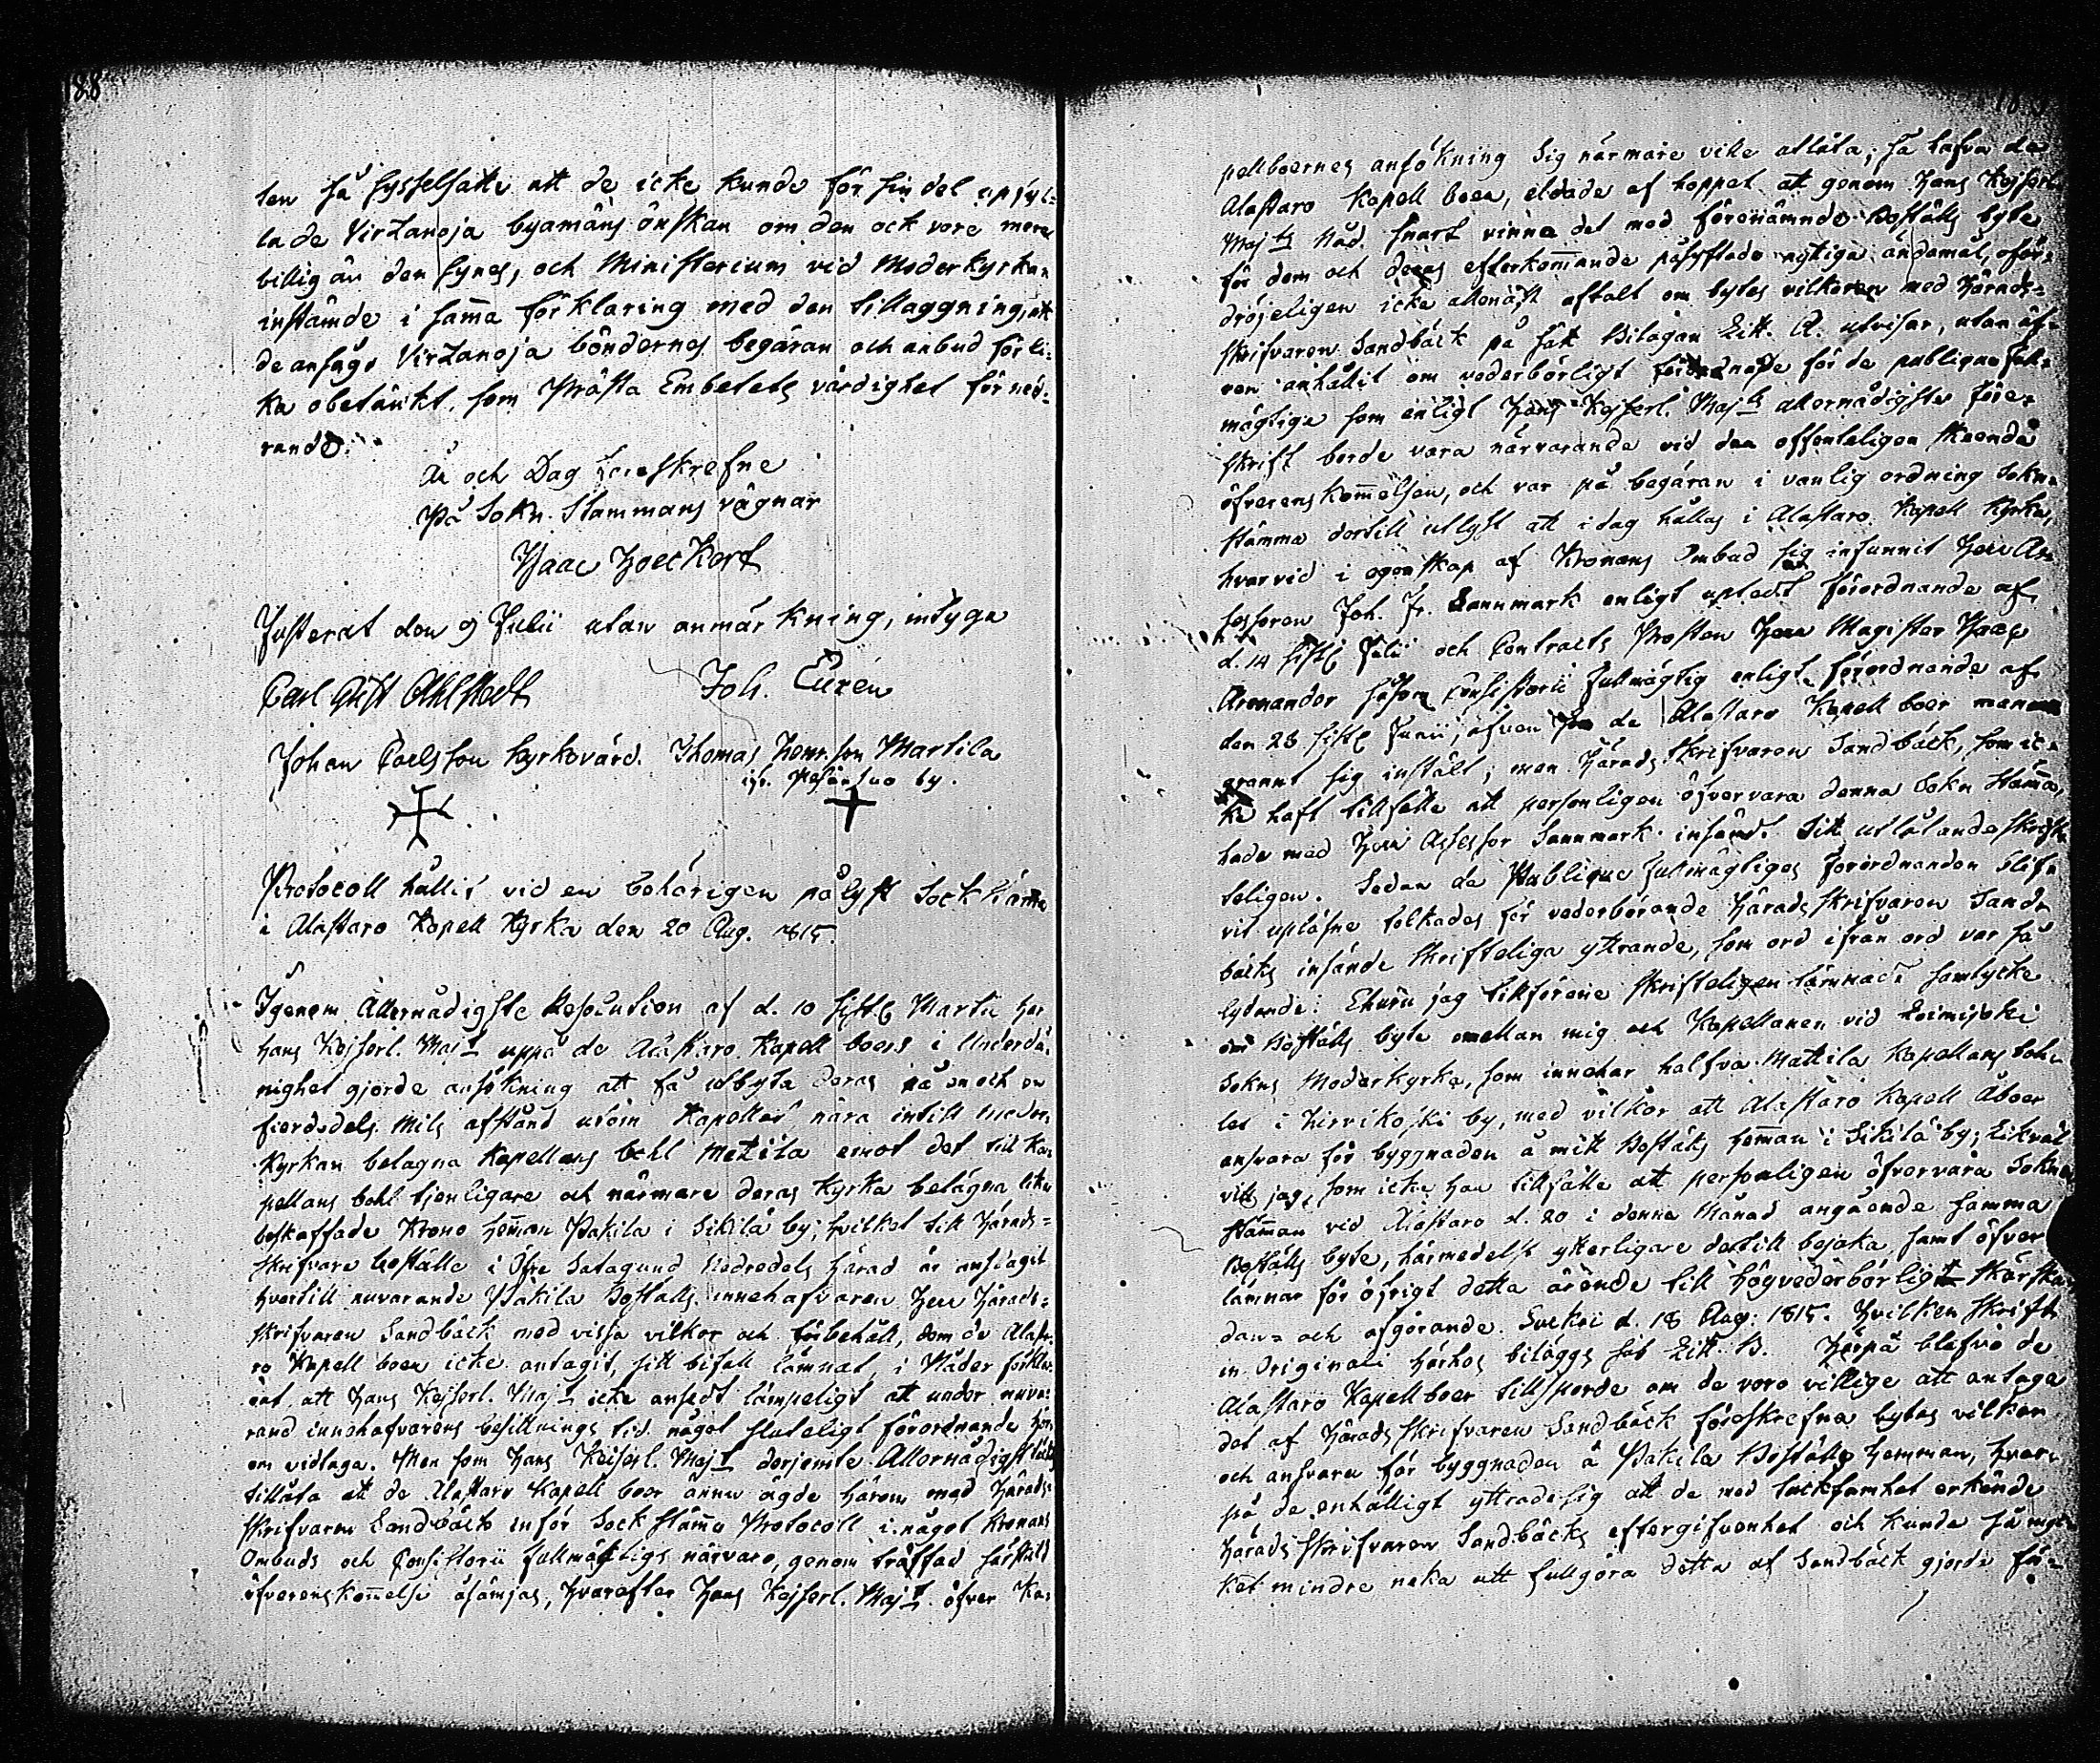 188
len så sysselsatte att de icke kunde för sin del upfyl=
la de Virtanoja byamäns önskan om den ock vore mera
billig än den synes, och Ministerium vid Moderkyrkan
instämde i samma förklaring med den tillaggning, att
de ansågo Virtanoja böndernes begäran och anbud för li=
ka obetänkt, som Prästa Embetets värdighet för ned=
rande.
År och Dag föreskrefne
På Sokn. Stammans vägnar
Isaac Hoeckert
Justerat den 9 Julii utan anmärkning, intyga
Carl Gust Ahlstedt Joh. Eurén
Johan Carlsson Kyrkovärd. Thomas Henr.son Martila
by.
Protocoll hållit vid en behörigen pålyst Sockstämma
i Alastaro Kapell Kyrka den 20 Aug. 1815.
Igenom Allernådigste Resolution af d. 10 sistl. Martii har
Hans Kejserl. Maj:t uppå de Alastaro Kapell boers i Underdå=
nighet gjorde ansökning att få utbyta deras på en och en
fierdedels Mils afstånd utom Kapellet nära intill Moder
Kyrkan belagna Kapellans bohl Mattila emot det till Ka=
pellans bohl tjenligare och närmare deras Kyrka belägna lika
beskaffade Krono hemman Pakila i Sikilä by; hvilket till Härads=
skrifvare boställe i Öfre Satagund Nedredels härad är anslagit
hvartill nuvarande Päkila Boställs innehafvaren Herr Härads=
skrifvaren Sandbäck med vissa vilkor och förbehåll, som de Alasta=
ro Kapell boen icke antagit, sitt bifall lämnat, i Nåder förkla=
rat, att Hans Kejserl. Maj:t icke ansedt lämpeligt att under nuva=
rand innehafvarens besittnings tid något sluteligt förordnande här=
om vidtaga. Men som Hans Keiserl. Maj:t derjemte Allernådigst
tillåta att de Alastaro Kapell boer ännu ägde härom med Härads=
skrifvaren Sandbäck inför Sock stämma Protocoll i något Kronans
Ombuds och Consistorii fullmäktigs närvaro, genom träffad särskild
öfverenskommelse åsämjas, hvarefter Hans Kejserl. Maj:t öfver Ka=
pellboernes ansökning Sig närmare ville utlåta; så hafva de
Alastaro Kapell Boen, eldade af hoppet att genom Hans Kejserl.
Maj:ts Nåd. snart vinna det med förenämnde Boställs byte
för dem och deras efterkommande påsyftade nyttiga ändamål, oför=
dröjeligen icke allenast aftalt om bytes vilkoren med Härads=
skrifvaren Sandbäck på sätt Bilagan Litt. A. utvisar, utan äf=
ven anhållit om vederbörligt förordnande för de publique full=
mägtige som enligt Hans Kejserl. Maj:ts allernådigste före=
skrift borde vara närvarande vid den offenteligen skeende
öfverenskommelsen, och var på begäran i vanlig ordning Sokn=
stämma dertill utlyst att i dag hållas i Alastaro Kapell Kyrka,
hvarvid i egenskap af Kronans Ombud sig infunnit Herr As=
sessoren Joh. Fr. Sannmark enligt upledt förordnande af
d. 14 sistl Julii och Contracts Prosten Herr Magister Isaac
Arenander såsom Consistorii fullmägtig enligt förordnande af
den 28 sistl Junii, äfven de Alastaro Kapell boer man
grannt sig inställt; men Härads Skrifvaren Sandbäck, som ic=
ke haft tillfälle att personligen öfvervara denna Sokn stämma,
hade med Herr Assessor Sannmark insändt sitt utlåtande skrift=
teligen. Sedan de Publique fullmägtiges förordnanden blif=
vit upläsne tolkades för vederbörande Häradsskrifvaren Sand=
bäcks insände skrifteliga yttrande, som ord ifrån ord var så
lydande: Ehuru jag tillförene skrifteligen lämnadt samtycke
om Boställs byte emellan mig och Kapellanen vid Loimijoki
Sokns Moderkyrka, som innehar halfva Mattila Kapellans bohl
let i Hirvikoski by, med vilkor att Alastaro Kapell Åboer
ansvara för byggnaden å mitt Boställs hemman i Sikilä by; Likväl
vill jag, som icke har tillfälle att personligen öfvervara Sokne
stämman vid Alastaro d. 20 i denna Månad angående samma
Boställs byte, härmedelst ytterligare dertill bejaka, samt öfver
lämnar för öfrigt detta ärende till högvederbörligt skärskå=
dan= och afgörande. Suckii d. 18 Aug: 1815. Hvilken skrift
in Originali härhos biläggs sub Litt. B. Härpå blefvo de
Alastaro Kapellboer tillsporde om de voro villige att antaga
det af Härads Skrifvaren Sandbäck föreskrefna bytes vilkor
och ansvara för byggnaden å Pakila Boställs hemman, hvar=
på de enhälligt yttrade sig att de med tacksamhet erkände
Härads Skrifvaren Sandbäcks eftergifvenhet och kunde så myc=
ket mindre neka att fullgöra detta af Sandbäck gjorde för=